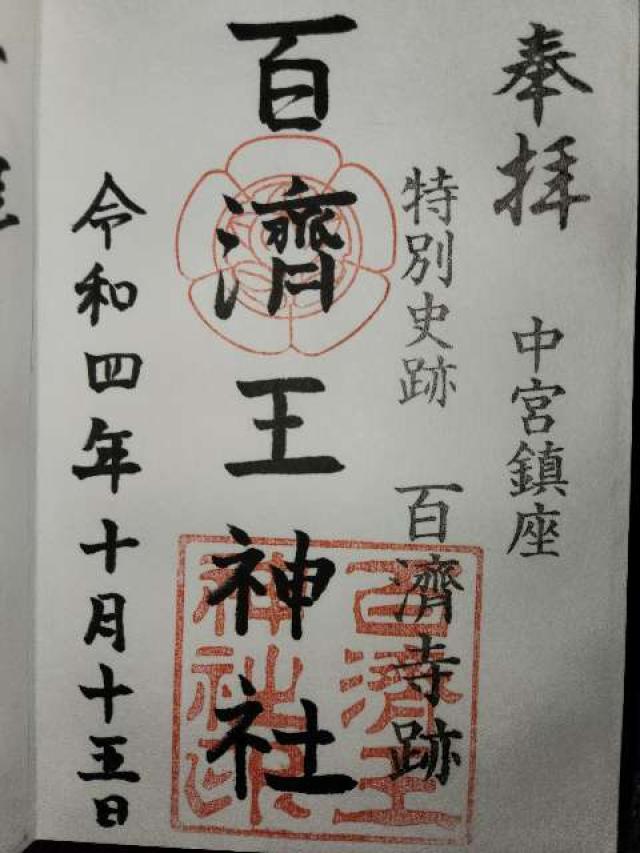 奉拝
中宮鎮座
特別史跡 百濟寺跡
百濟王神社
令和四年十月十五日
百済王
神社印